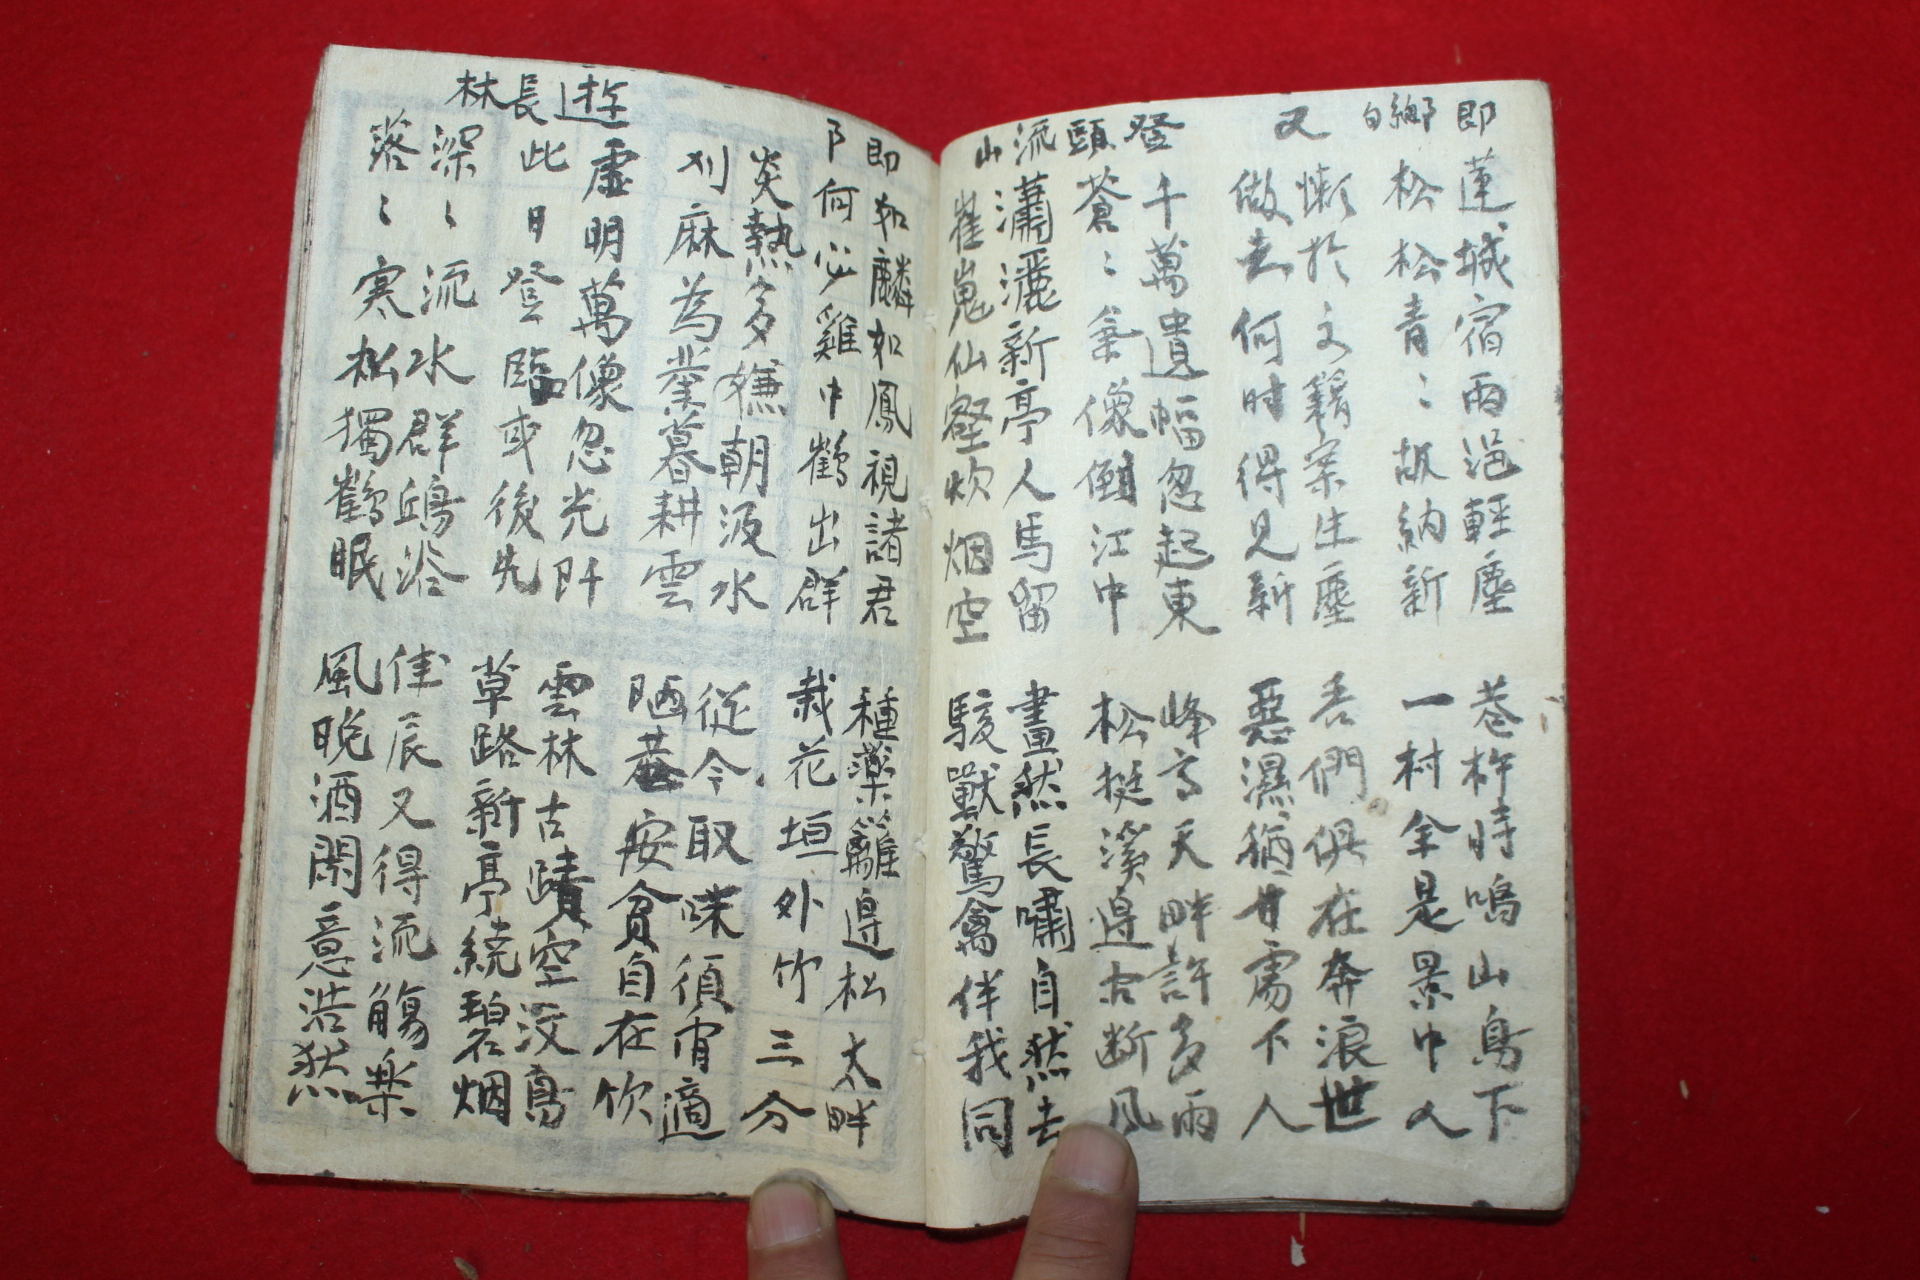 即 蓮城宿雨浥輕塵 巷杵時鳴山鳥下
松松松青〻故納新 一村全是景中人
又 懶於文籍案生塵 吾們俱在奔浪世
做去何時得見新 惡濕猶甘處下人
登 千萬遺幅忽起東 峰高天畔許多雨
頭 蒼〻氣像倒江中 松挺溪邊古斷風
流 瀟灑新亭人馬留 畫然長嘯自然去
山 崔嵬仙壑炊烟空 駿獸驚禽伴我同
即 如麟如鳳視諸君 種藥籬邊松太畔
卩 何必雞中鶴出群 栽花垣外竹三分
炎熱多嫌朝汲水 從今取喋須宵適
刈麻為業暮耕雲 陋巷安貧自在欣
遊 虛明萬像忽光阡 雲林古蹟空沒鳥
長 此日登臨或後先 草路新亭繞碧烟
林 深〻流水群鷗浴 佳辰又得流觴樂
落〻寒松獨鶴眠 風晚酒闌意浩然